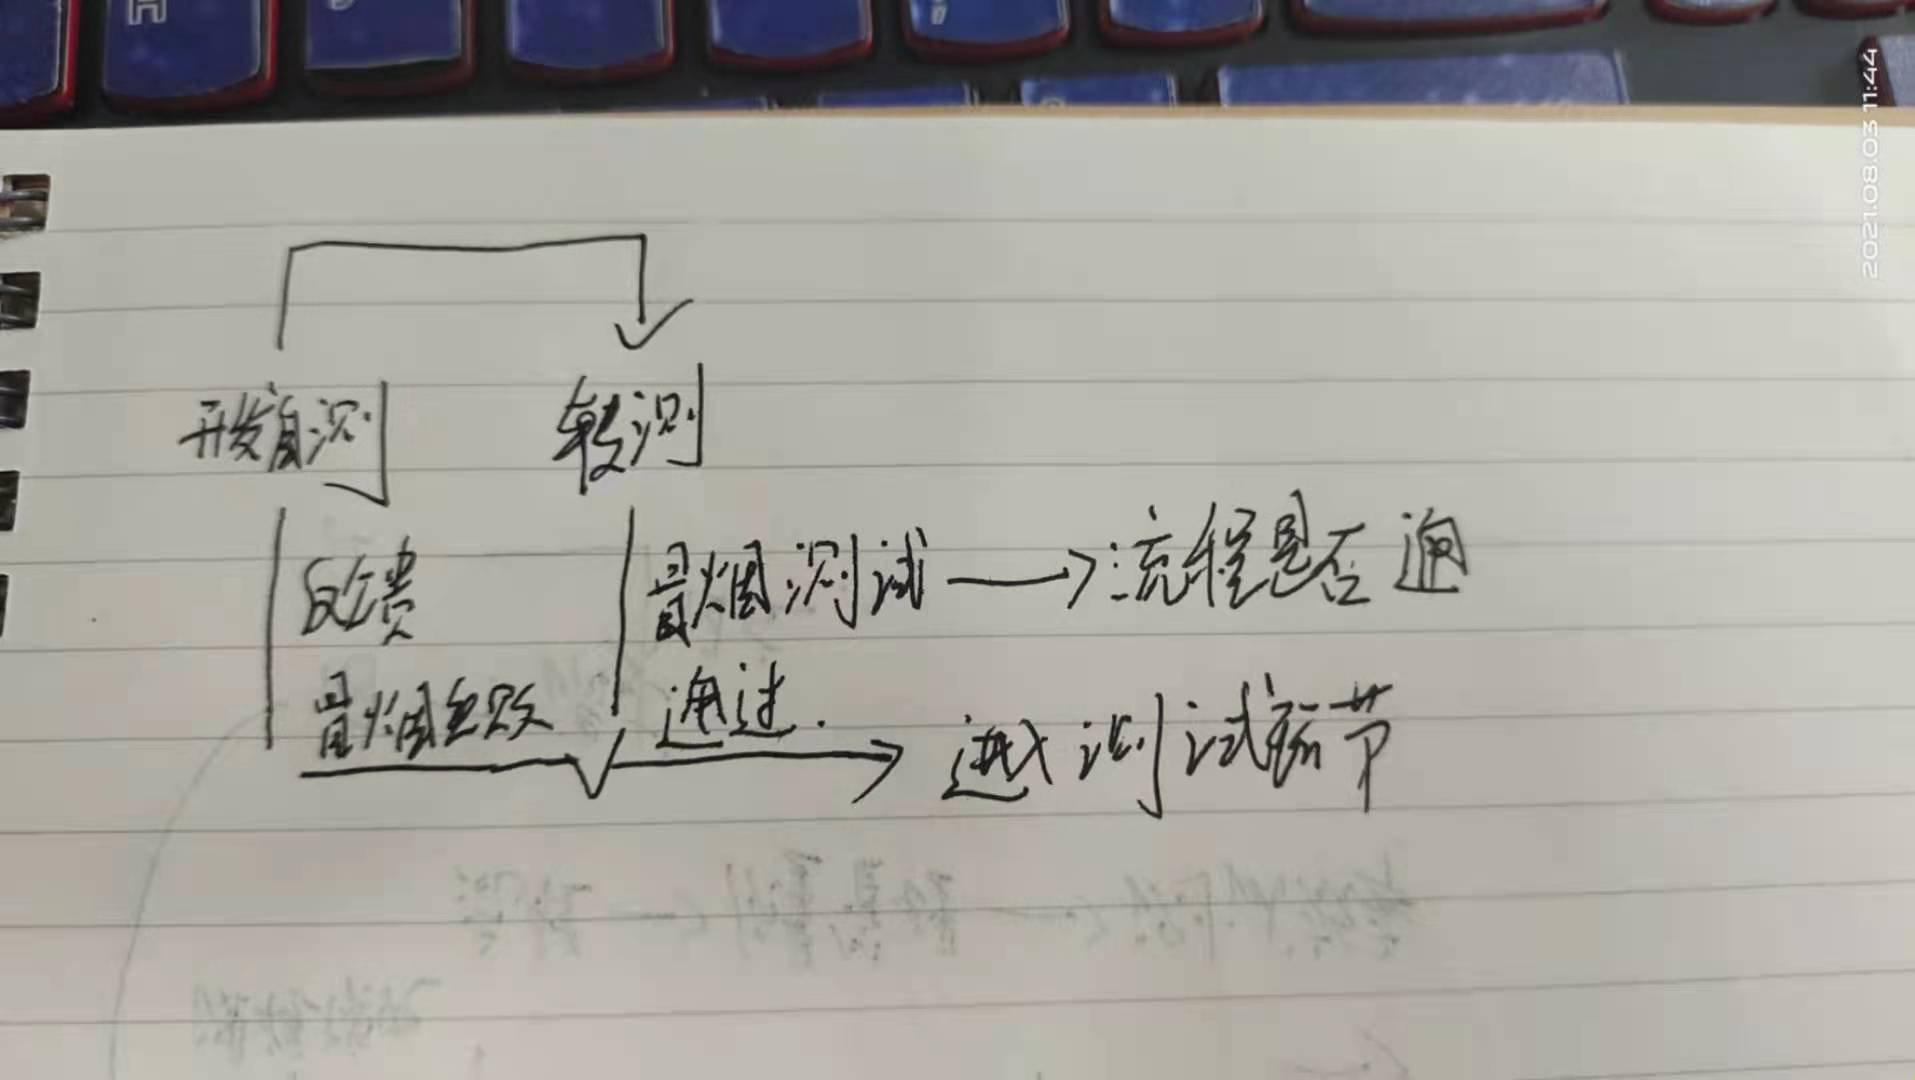 开发自测 转测
反馈 冒烟测试 → 流程是否通
冒烟失败 通过. → 进入测试环节
2021.08.03 11:44